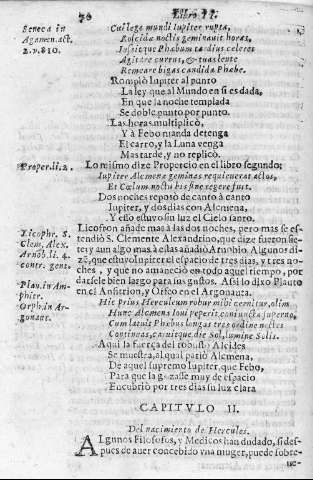 78 Libro II.
Seneca in
Agamen. act.
2. v. 810.
Cui lege mundi Iupiter rupta,
Roscidæ noctis geminauit horas,
Iussitque Phœbum tardius celeres
Agitare currus, & tuas lente
Remeare bigas candida Phœbe.
Rompiò Iupiter al punto
La ley que al Mundo en si es dada,
En que la noche templada
Se doble punto por punto.
Las horas multiplicò,
Y à Febo manda detenga
El carro, y la Luna venga
Mas tarde, y no replicò.
Proper. li. 2.
Lo mismo dize Propercio en el libro segundo:
Iupiter Alcmenæ geminas requieuerat actos,
Et Cælum noctu bis sine rege fuit.
Dos noches reposò de canto à canto
Iupiter, y dos dias con Alcmena,
Y esso estuvo sin luz el Cielo santo.
Licophr. S.
Clem. Alex.
Arnob. li. 4.
contr. gent.
Licofron añade mas à las dos noches, pero mas se es-
tendiò S. Clemente Alexandrino, que dize fueron sie-
te; y aun algo mas à ellas añadiò Arnobio. Algunos di-
zē, que estuvo Iupiter el espacio de tres dias, y tres no-
ches, y que no amaneciò en todo aquel tiempo, por
darsele bien largo para sus gustos. Assi lo dixo Plauto
en el Anfitrion, y Orfeo en el Argonauta.
Plau. in Am-
phitr.
Orph. in Ar-
gonaut.
Hic prius Herculeum robur mihi cernitur, olim
Hunc Alcmena Ioui peperit coniuncta superno,
Cum latuit Phœbus longas tres ordine noctes
Continuas, caruitque die Sol, lumine Solis.
Aqui la fuerça del robusto Alcides
Se muestra, al qual pariò Alcmena,
De aquel supremo Iupiter, que Febo,
Para que la gozasse muy de espacio
Encubriò por tres dias su luz clara
CAPITVLO II.
Del nacimiento de Hercules.
ALgunos Filosofos, y Medicos han dudado, si des-
pues de auer concebido vna muger, puede sobre-